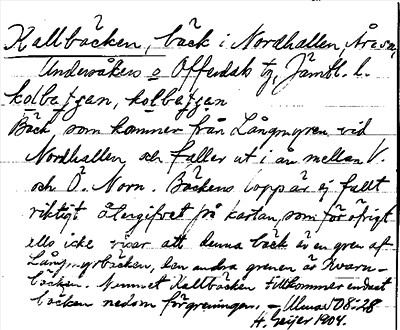 Kallbäcken, bäck i Nordhallen, Åresn,
Undersåkers o Offerdals tg, Jämtl. l.
kolbæʃʃan, kolbæʃʃan
Bäck, som kommer från Långmyren vid
Nordhallen, och faller ut i ån mellan V.
och Ö. Norn. Bäckens lopp är ej fullt
riktigt återgifvet på kartan, som för öfrigt
ells icke visar att denna bäck är en gren af
Långmyrbäcken, den andra grenen är Kvarn-
bäcken. Namnet Kallbäcken tillkommer endast
bäcken nedom förgreningen. – Ulmas 08:28
H. Geijer 1904.